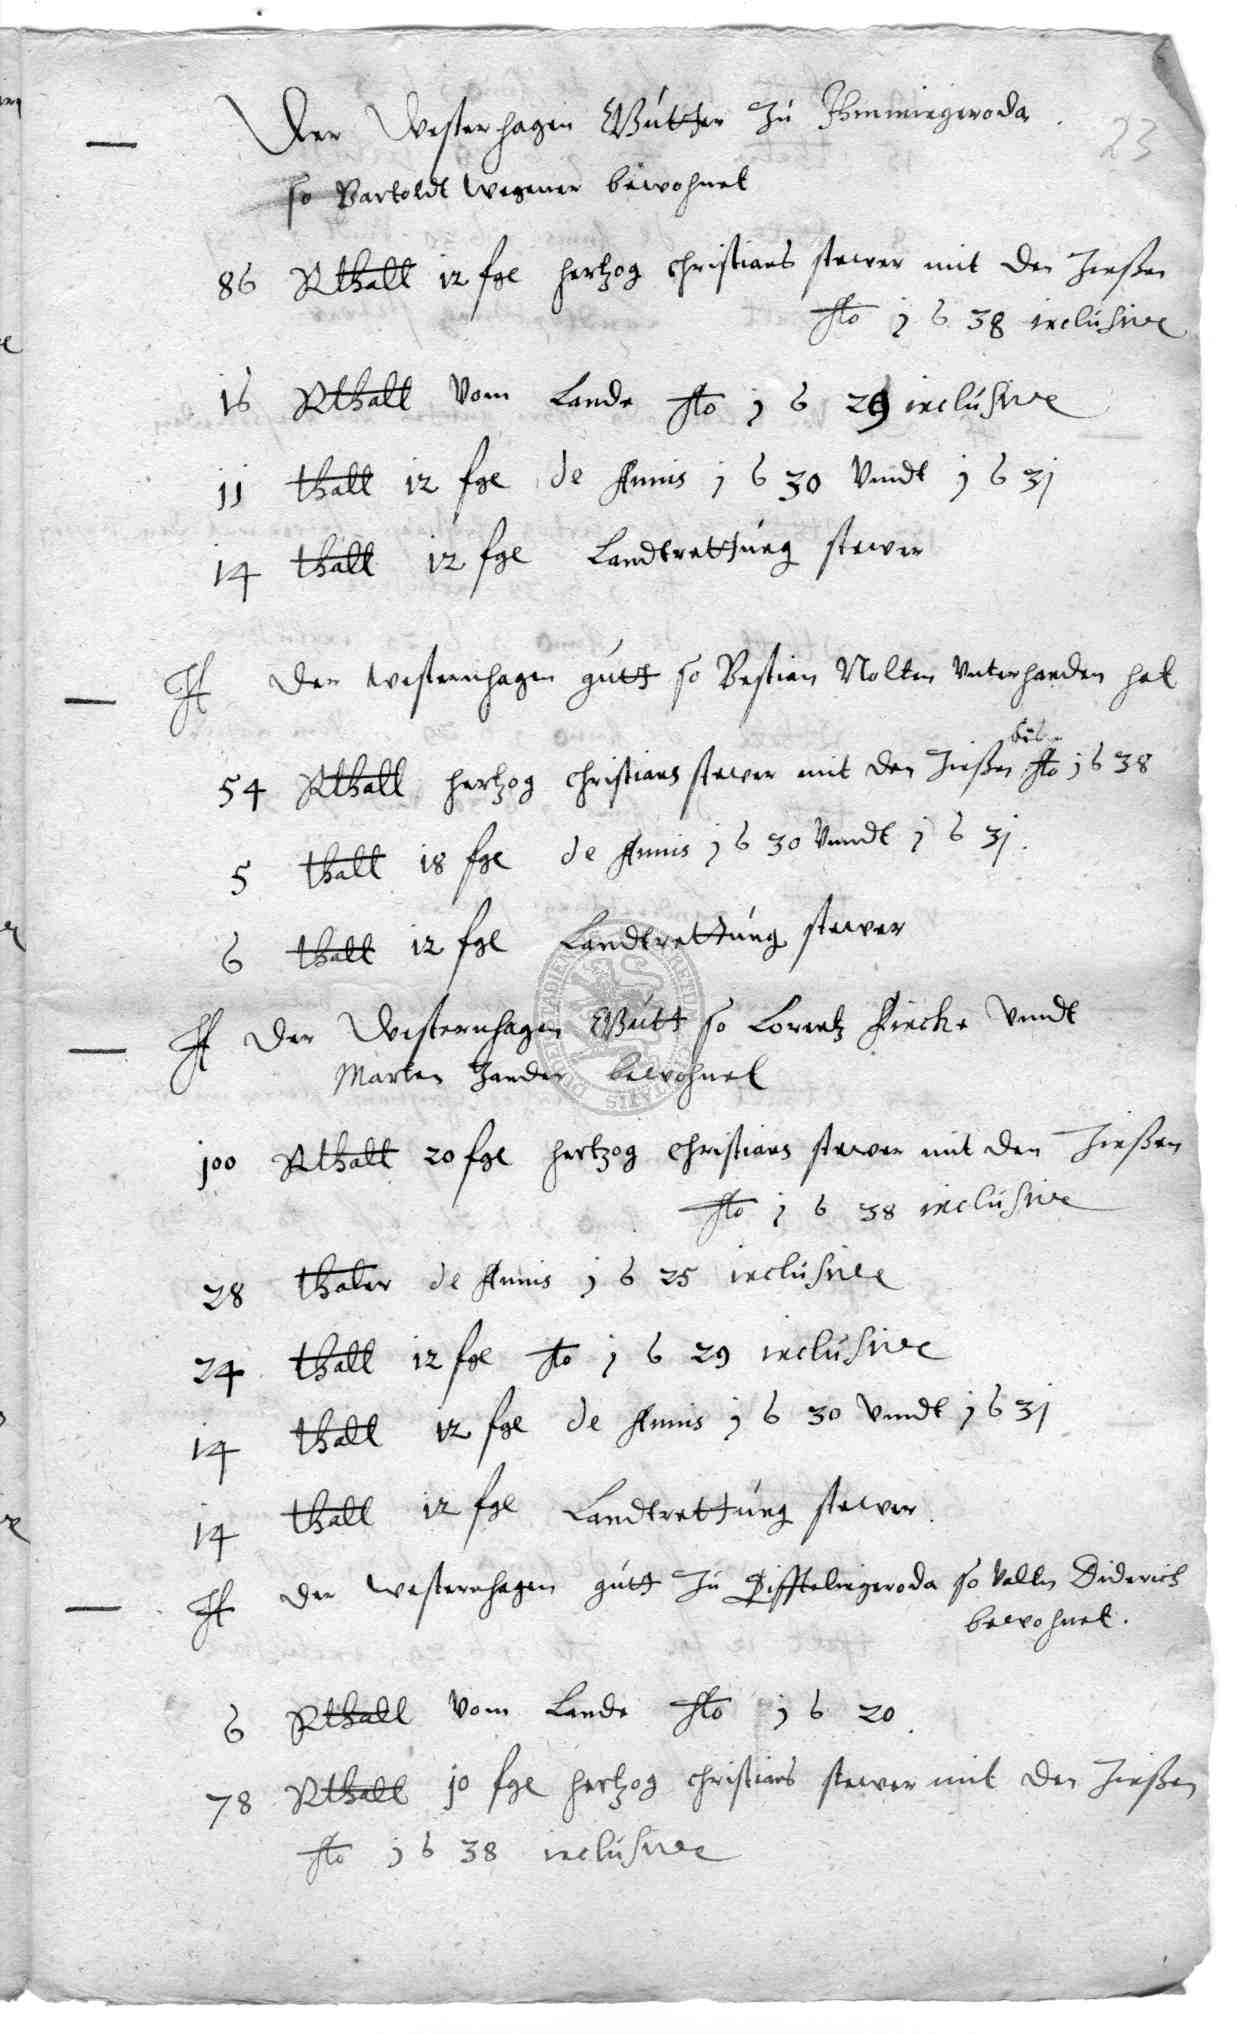 23
Der Westerhagen Gütter zu Immingeroda
so Bartoldt Wegener bewohnet
86 Rthall 12 fge hertzog christians stewer mit den Zinßen
Ao 1638 inclusive
16 Rthall vom Lande Ao 1629 inclusive
11 thall 12 fge de Annis 1630 vndt 1631
14 thall 12 fge Landtrettung stewer
It Der westernhagen gutt so Bestian Nolten vnterhanden hat
bis
54 Rthall hertzog christians stewer mit den Zinßen Ao 1638
5 thall 18 fge de Annis 1630 vundt 1631.
6 thall 12 fge Landtrettung stewer
It Der Westernhagen Gutt so Lorentz vundt
Marten Zander bewohnet
100 Rthall 20 fge hertzog christians stewer mit den Zinßen
Ao 1638 inclusive
28 thaler de Annis 1625 inclusive
24 thall 12 fge Ao 1629 inclusive
14 thall 12 fge de Annis 1630 vundt 1631
14 thall 12 fge Landtrettung stewer.
It Der westernhagen gutt zu Pifftelingeroda so Valtin Diderich
bewohnet.
6 Rthall vom Lande Ao 1620
78 Rthall 10 fge hertzog christians stewer mit den Zinßen
Ao 1638 inclusive